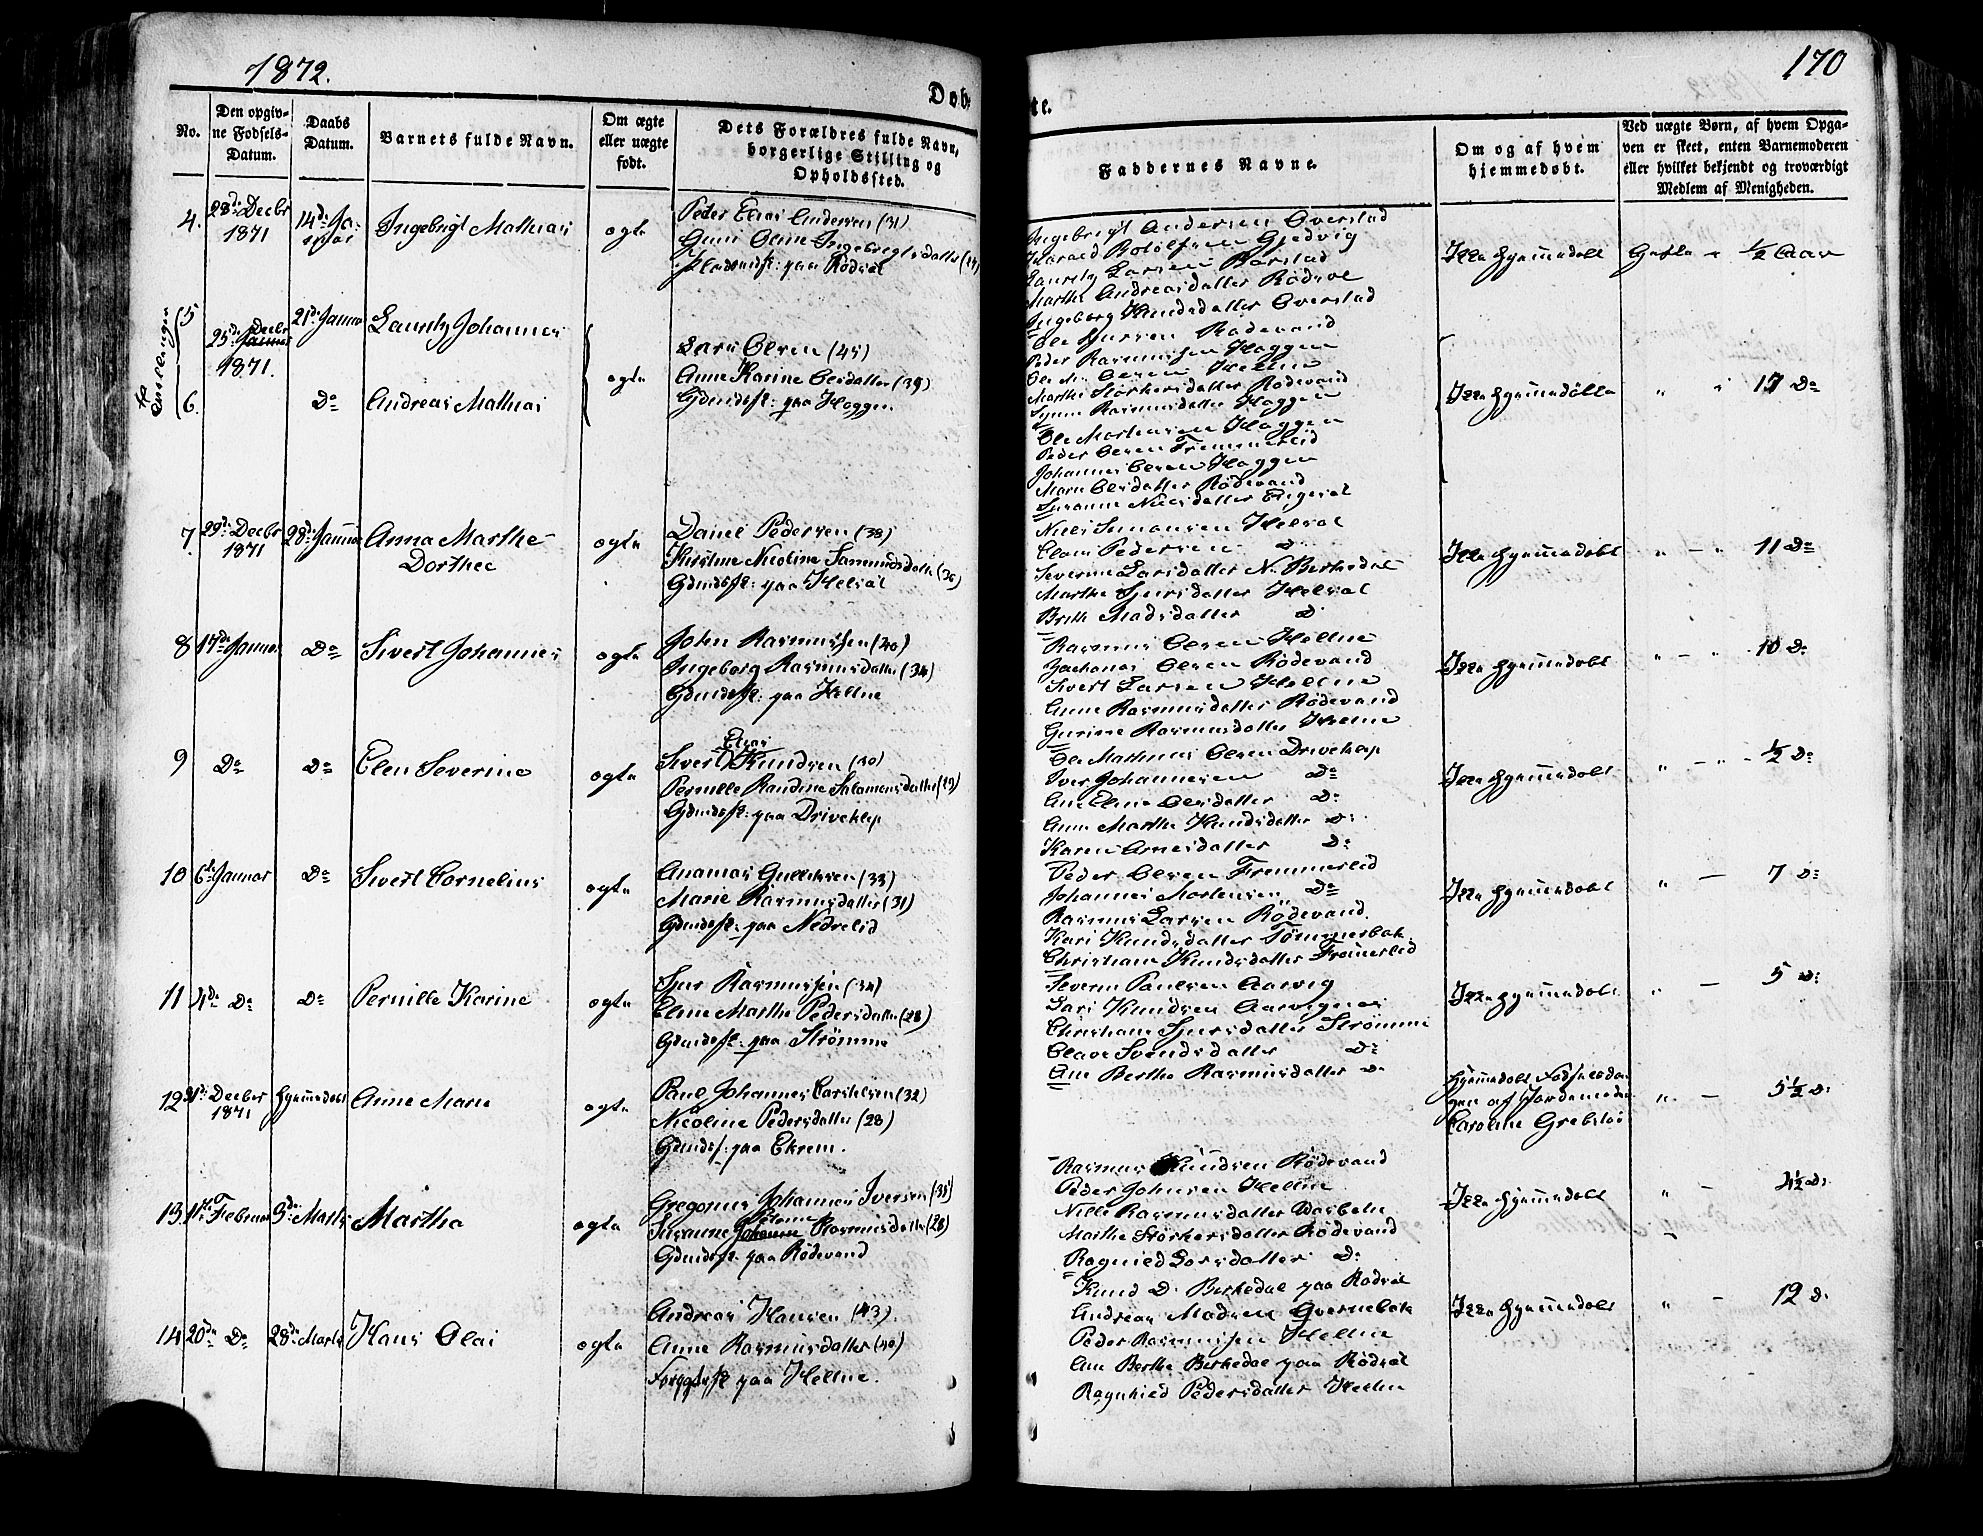 1872.
170
Døb-
te.
No.
Den opgiv-
ne Fødsels-
Datum.
Daabs
Datum.
Barnets fulde Navn.
Om ægte
eller uægte
født.
Dets Forældres fulde Navn,
borgerlige Stilling og
Opholdssted.
Faddernes Navne.
Om og af hvem
hjemmedøbt.
Ved uægte Børn, af hvem Opga-
ven er skeet, enten Barnemoderen
eller hvilket bekjendt og troværdigt
Medlem af Menigheden.
4.
28de Decbr
1871
14de Ja-
nuar
Ingebrigt Mathias
ægte
Peder Elias Andersen (31)
Guri Oline Ingebrigtsdatter
paa Rødval
Ingebrigt Andersen Overstad
Harald Rotolfsen Gjedvig
Lauritz Larsen Barstad
Marthe Andreasdatter Rødvol
Ingeborg Knudsdatter Overstad
Ikke hjemmedøbt
1/2
5
6.
Tvillinger
25de Decbr
1871.
21de Januar
Lauritz Johannes
Do
Andreas Mathias
ægte
Lars Olsen (45)
Anne Karine Olsdatter (39)
Gdmdsf: paa Haggen
Ole Sjursen Rødevand
Peder Rasmussen Haggen
Olsen Helline
Marthe Storkersdatter Rødevand
Synne Rasmusdatter Haggen
Ole Mortensen Haggen
Peder Olsen Fremmerlid
Johannes Olsen Haggen
Maren Olsdatter Rødevand
Susanne Nielsdatter
Ikke hjemmedøbte
" " 17 Do
7.
29de Decbr
1871
28de Januar
Anna Marthe
Dorthee
ægte
Daniel Pedersen (38)
Kirstine Nicoline Samundsdatter (36)
Gdmdsf: paa Helsæt
Niels Simonsen
Claus Pedersen D
Severine Larsdatter N. Berkedal
Marthe Sjursdatter
Brith Madsdatter D
Ikke hjemmedøbt
" - " 11 Do
8
17de Januar
Do
Sivert Johannes
ægte
John Rasmussen (40)
Ingeborg Rasmusdatter (34)
Gdmdsf: paa Helline
Rasmus Olsen Helline
Zacharias Olsen Rødevand
Sivert Larsen Helline
Anne Rasmusdatter Rødevand
Gurine Rasmusdatter Helline
Ikke hjemmedøbt
" - " 10 Do
9
Do
Do
Elen Severine
ægte
Elias
Sivert Knudsen (30)
Pernille Randine Salamonsdatter (29)
Gdmdsf: paa Driveklep
Ole Mathias Olsen Driveklep
Iver Johannesen Do
Ane Eline Olsdatter Do
Anne Marthe Knudsdatter Do
Karen Arnesdatter Do
Ikke hjemmedøbt
" - " - 1/2 Do
10
6te Januar
Do
Sivert Cornelius
ægte
Ananias Gulliksen (35)
Marie Rasmusdatter (31)
Gdmdsf: paa Nedrelid
Peder Olsen Fremmerlid
Johannes Mortensen Do
Rasmus Larsen Rødevand.
Kari Knudsdatter Tømmerbak
Christiane Knudsdatter Fremmerlid
Ikke hjemmedøbt
" - 7 Do
11
4de Do
Do
Pernille Karine
ægte
Sjur Rasmussen (34)
Eline Marthe Pedersdatter (28)
Gdmdsf: paa Strømme
Severin Paulsen Aarvig
Lars Knudsen Aarvignes
Christiane Sjursdatter Strømme
Olave Svendsdatter Do
Ane Berthe Rasmusdatter Do
Ikke hjemmedøbt
" - 5 Do
12
Decber
1871
Hjemmedøbt
Anne Marie
ægte
Paul Johannes Carstensen (32)
Nicoline Pedersdatter (28)
Gdmdsf: paa Ekrem.
Hjemmedøbt Fødselsda-
gen af Jordemoder
Caroline Grebstad
" - 5 1/2 Do
13.
11te Februar
3de Marts
Martha
ægte
Gregorius Johannes Iversen (35)
Petrine
Susanne Johanne Rasmusdatter (28)
Gdmdsf: paa Rødevand
Rasmus Knudsen Rødevand
Peder Johnsen Helline
Nille Rasmusdatter
Marthe Storkersdatter Rødevand
Ragnild Larsdatter Do
Ikke hjemmedøbt
" - 4 1/2 Do
14
20de Do
28de Marts
Hans Olai
ægte
Andreas Hansen (43)
Anne Rasmusdatter (40)
paa Helline.
Knud D. Berkedal paa Rødsæt
Andreas Madsen Qvernebak
Peder Rasmussen Helline
Ane Berthe Berkedal paa Rødsæt
Ragnhild Pedersdatter Helline
Ikke hjemmedøbt
" - 12 Do